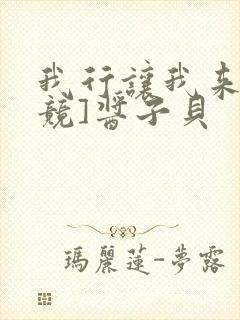 我行讓我来
競]醬子貝
瑪麗蓮-夢露